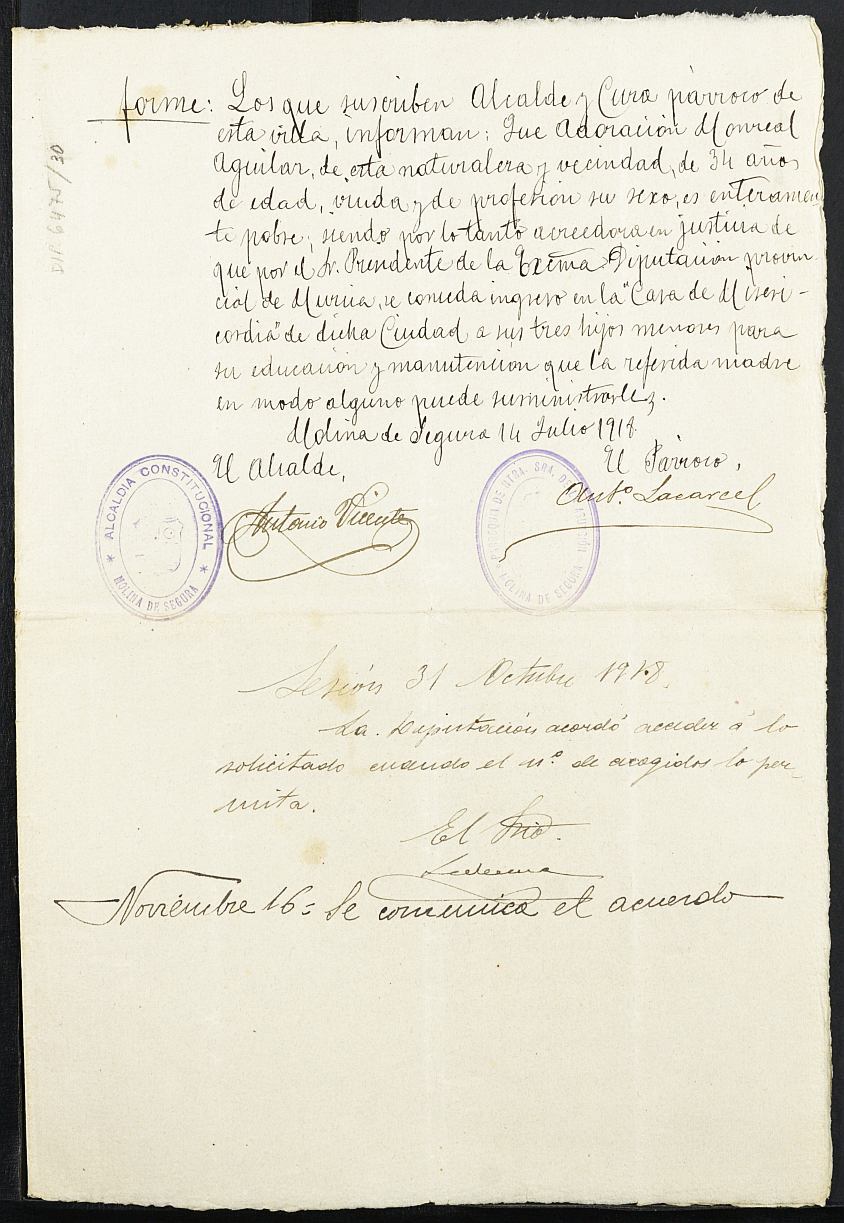 forme: Los que suscriben Alcalde y Cura párroco de
esta villa, informan: Que Adoración Monreal
Aguilar, de esta naturaleza y vecindad, de 34 años
de edad, viuda y de profesión su sexo, es enteramen-
te pobre, siendo por lo tanto acreedora en justicia de
que por el Sr. Presidente de la Excma Diputación provin-
cial de Murcia, se conceda ingreso en la "Casa de Miseri-
cordia" de dicha Ciudad a sus tres hijos menores para
su educación y manutención que la referida madre
en modo alguno puede suministrarles.
Molina de Segura 14 Julio 1918.
El Alcalde,
El Párroco,
Antonio Vicente
Antº. Lacarcel
* ALCALDIA CONSTITUCIONAL *
MOLINA DE SEGURA
PARROQUIA DE NTRA. SRA. DE LA ASUNCIÓN
* MOLINA DE SEGURA *
Sesión 31 Octubre 1918.
La Diputación acordó acceder á lo
solicitado cuando el nº de acogidos lo per-
mita.
El Srio.
Ledesma
Noviembre 16 = Se comunica el acuerdo
DIP 6475/30